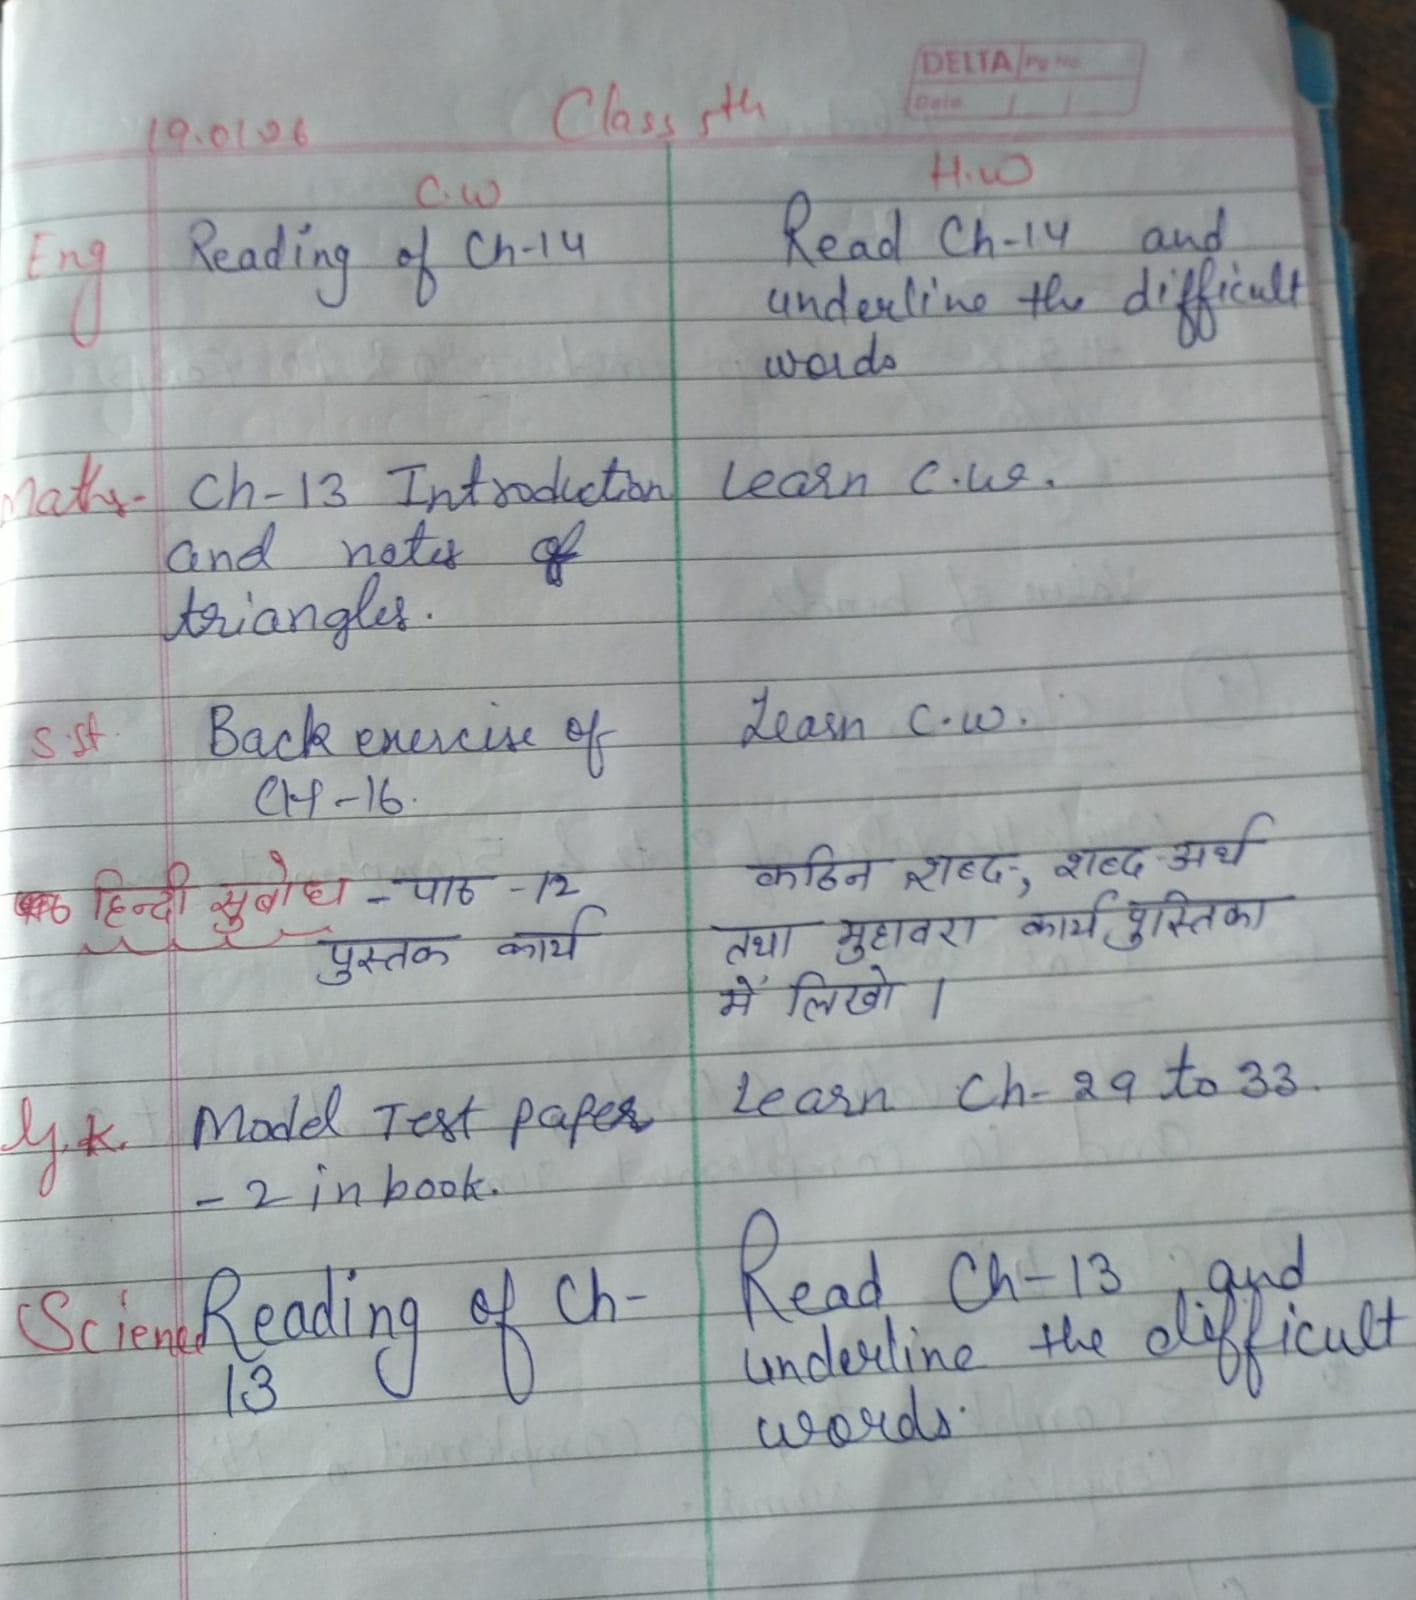 DELTA Pg No.
Date / /
19.01.26 Class 5th
C.W H.W
Eng Reading of Ch-14 Read Ch-14 and
underline the difficult
words
Maths- Ch-13 Introduction Learn C.W.
and notes of
triangles.
S.St. Back exercise of Learn C.W.
CH-16.
हिन्दी सुबोध - पाठ -12 कठिन शब्द, शब्द-अर्थ
पुस्तक कार्य तथा मुहावरा कार्य पुस्तिका
में लिखो ।
G.K. Model Test paper Learn Ch- 29 to 33.
- 2 in book.
Science Reading of Ch- Read Ch-13 and
13 underline the difficult
words.